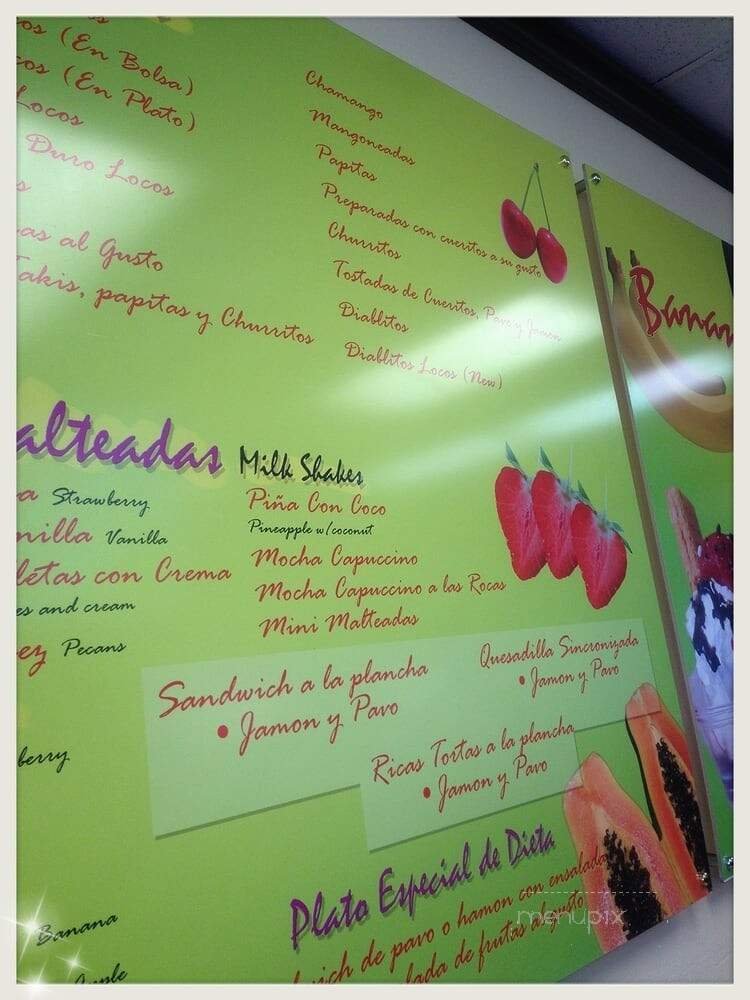 (En Bolsa)
(En Plato)
Locos
Duro Locos
al Gusto
Takis, papitas y Churritos
Chamango
Mangoneadas
Papitas
Preparadas con cueritos a su gusto
Churritos
Tostadas de Cueritos, Pavo y Jamon
Diablitos
Diablitos Locos (New)
Banan
alteadas Milk Shakes
Strawberry
nilla Vanilla
letas con Crema
es and cream
ez Pecans
Piña Con Coco
Pineapple w/coconut
Mocha Capuccino
Mocha Capuccino a las Rocas
Mini Malteadas
Sandwich a la plancha
• Jamon y Pavo
Quesadilla Sincronizada
• Jamon y Pavo
Ricas Tortas a la plancha
• Jamon y Pavo
berry
Banana
Plato Especial de Dieta
wich de pavo o hamon con ensalada
lada de frutas al gusto
menupix